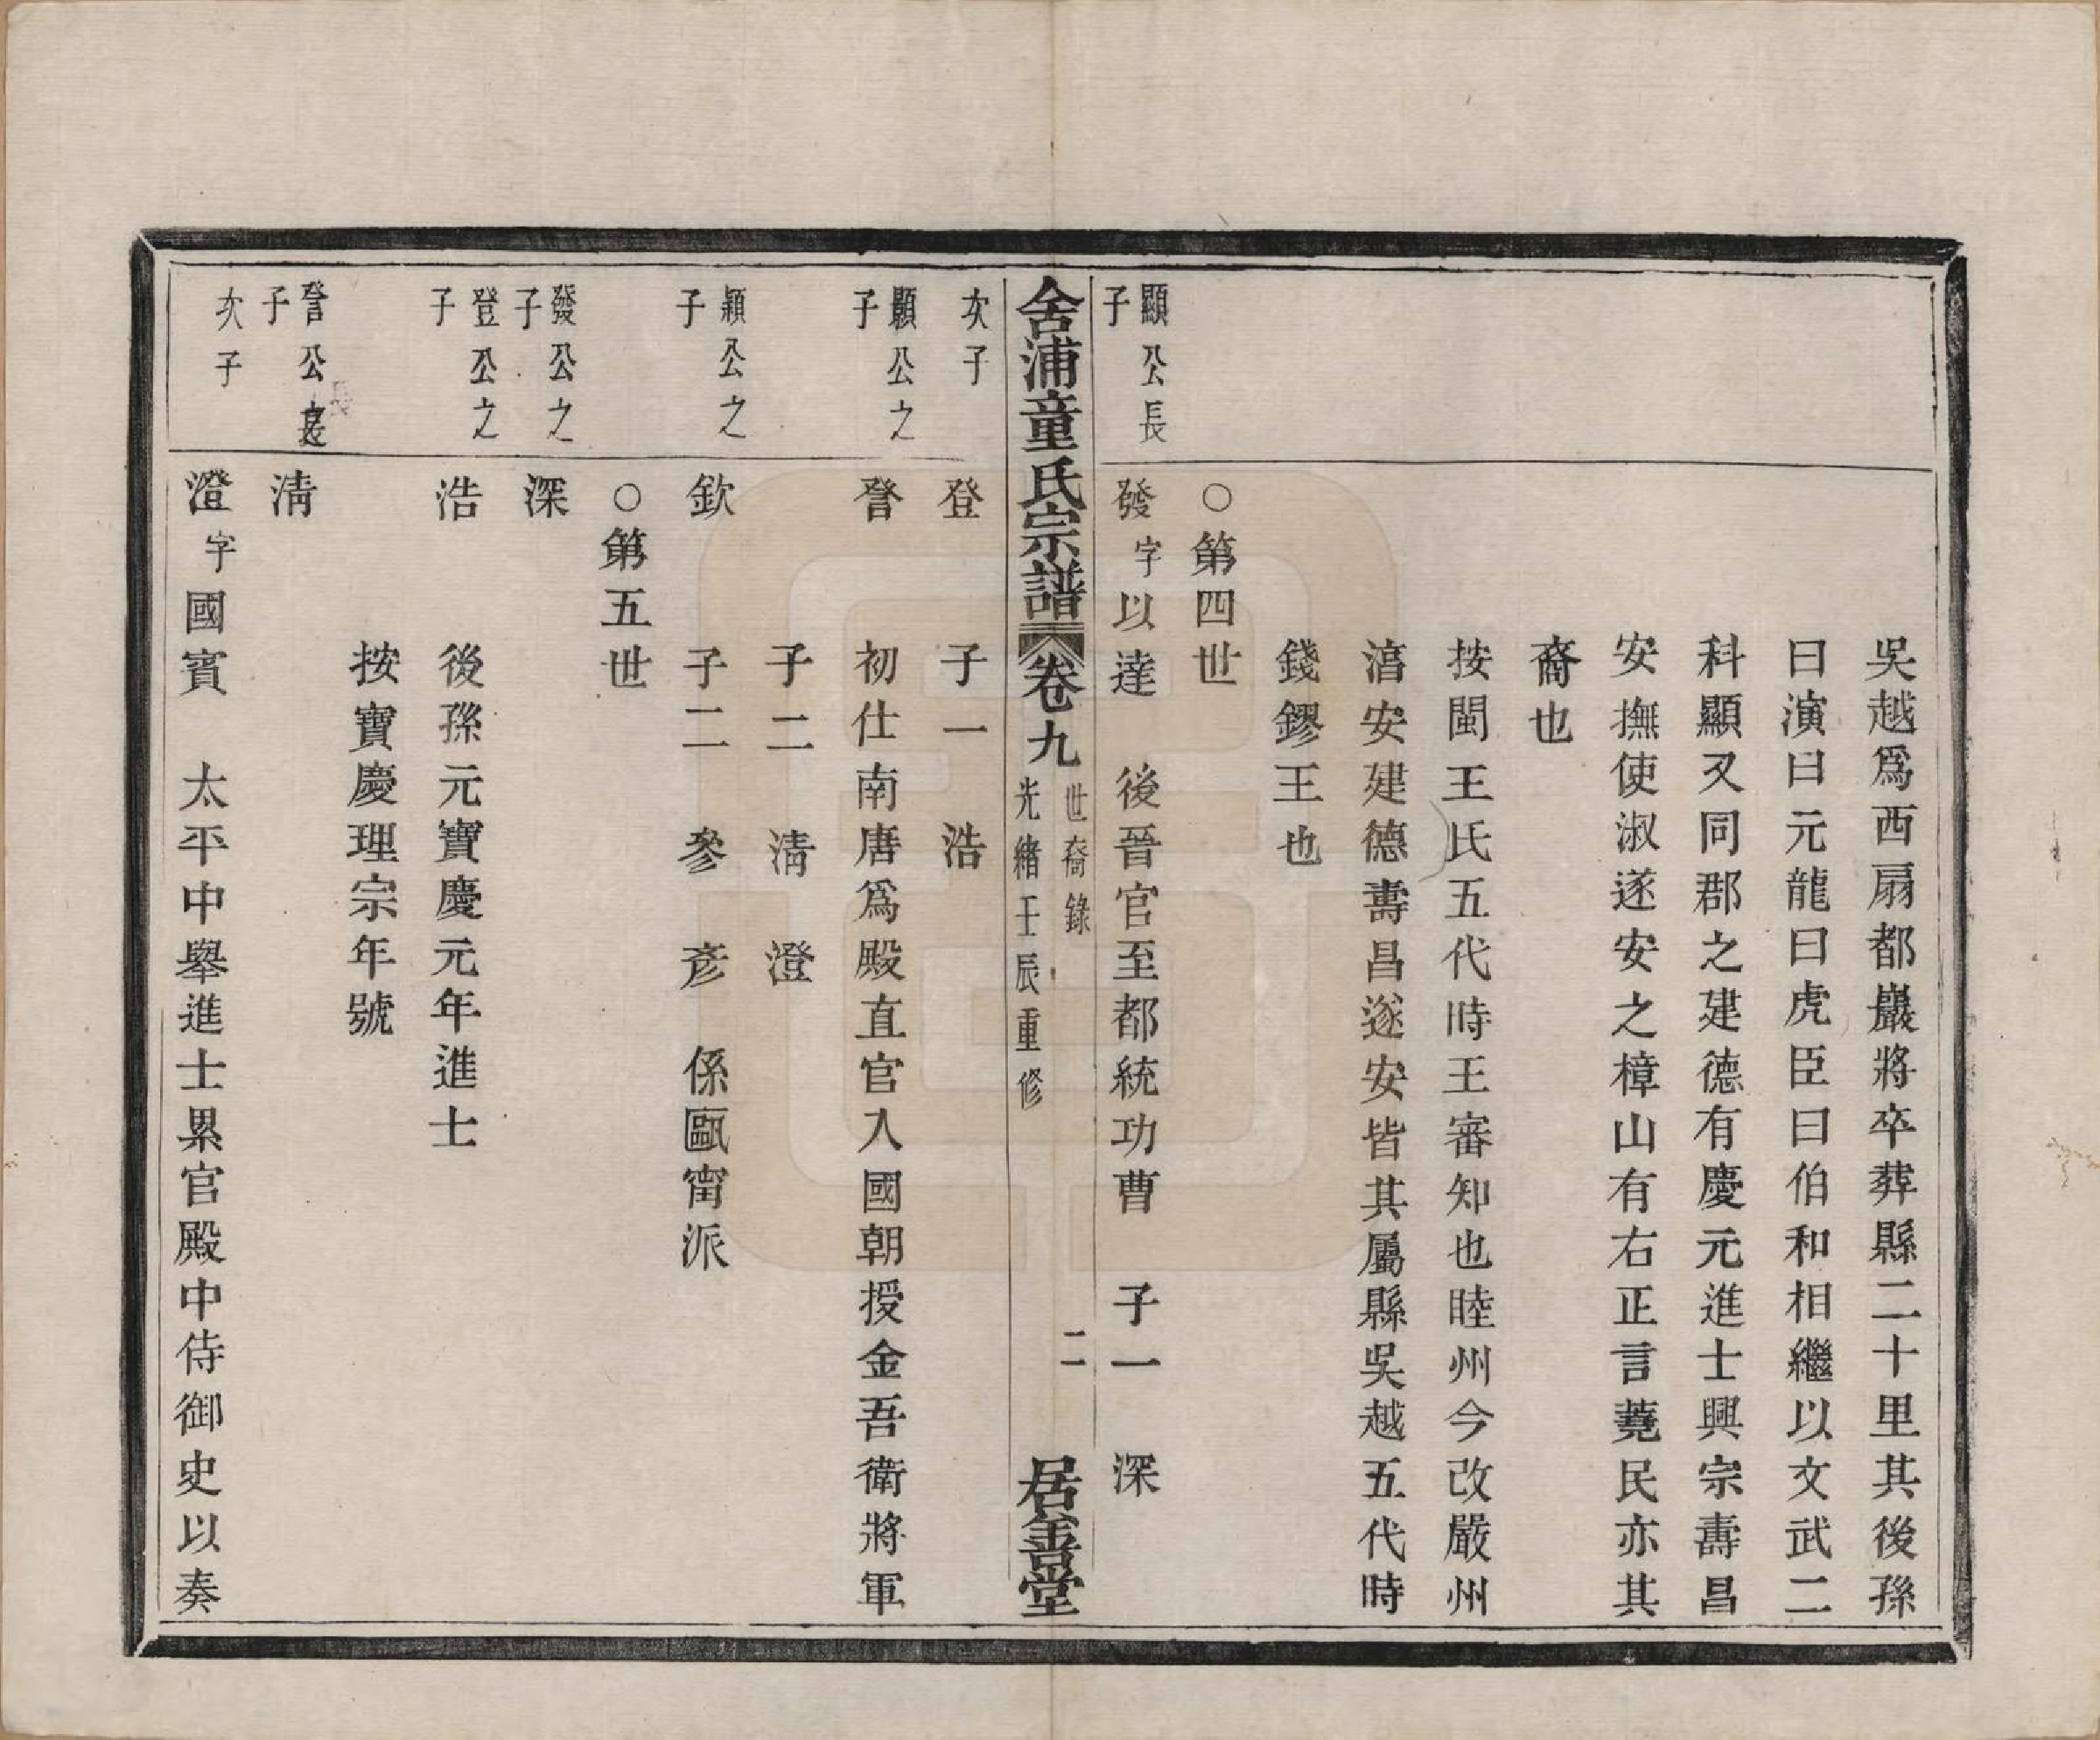 吳越爲西扇都巖將卒葬縣二十里其後孫
曰演曰元龍曰虎臣曰伯和相繼以文武二
科顯又同郡之建德有慶元進士興宗壽昌
安撫使淑遂安之樟山有右正言蕘民亦其
裔也
按閩王氏五代時王審知也睦州今改嚴州
淯安建德壽昌遂安皆其屬縣吳越五代時
錢鏐王也
○第四世
顯公長
子
發字以達 後晉官至都統功曹 子一 深
舍浦童氏宗譜 卷九 世裔錄 光緒壬辰重修 二 居善堂
次子
登 子一 浩
顯公之
子
詧 初仕南唐爲殿直官入國朝授金吾衛將軍
子二 淸 澄
穎公之
子
欽 子二 參 彥 係甌甯派
○第五世
發公之
子
深
登公之
子
浩 後孫元寶慶元年進士
按寶慶理宗年號
詧公長
子
淸
次子
澄字國賓 太平中舉進士累官殿中侍御史以奏